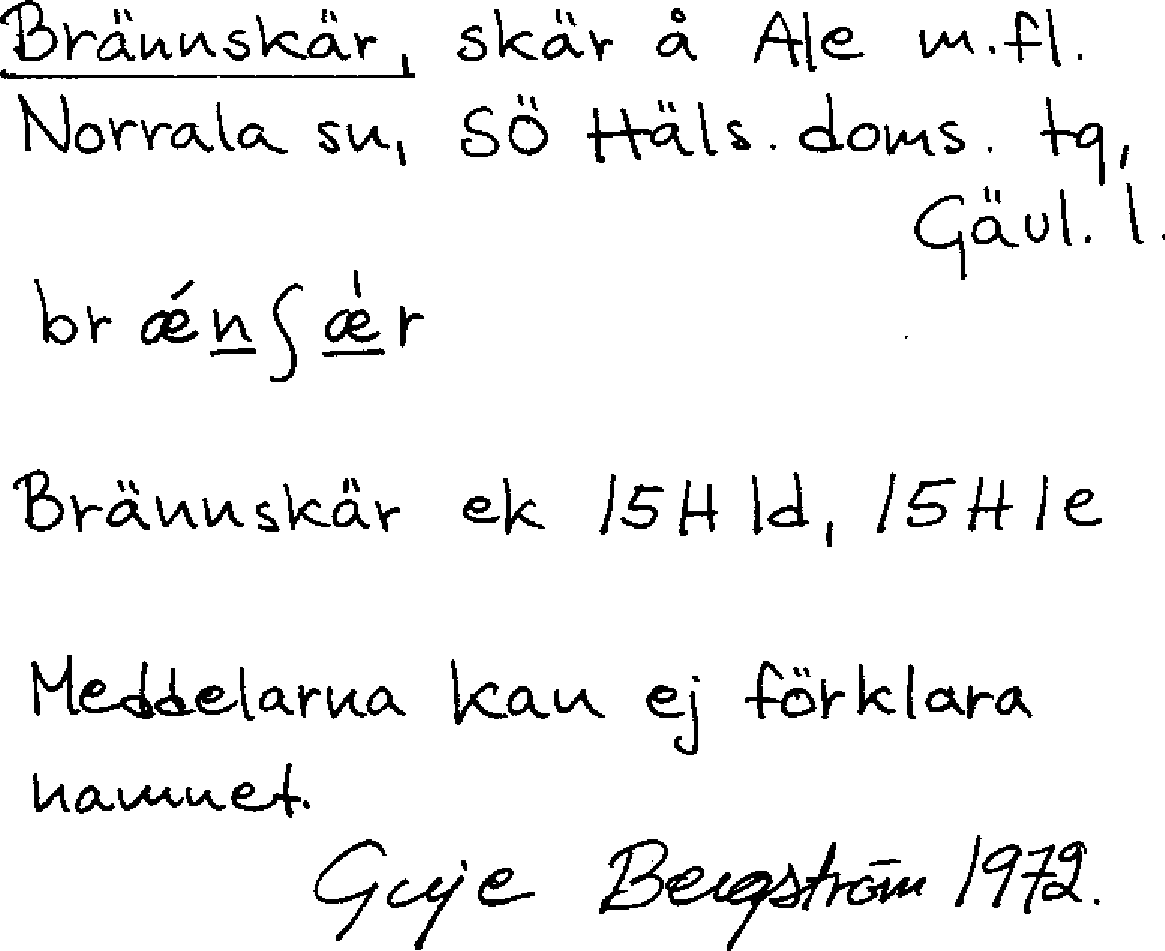 Brännskär, skär å Ale m.fl.
Norrala sn, SÖ Häls. doms. tg,
Gävl. l.
br ǽn ʃ ǽ r
Brännskär ek 15H 1d, 15H 1e
Meddelarna kan ej förklara
namnet.
Bergström 1972.